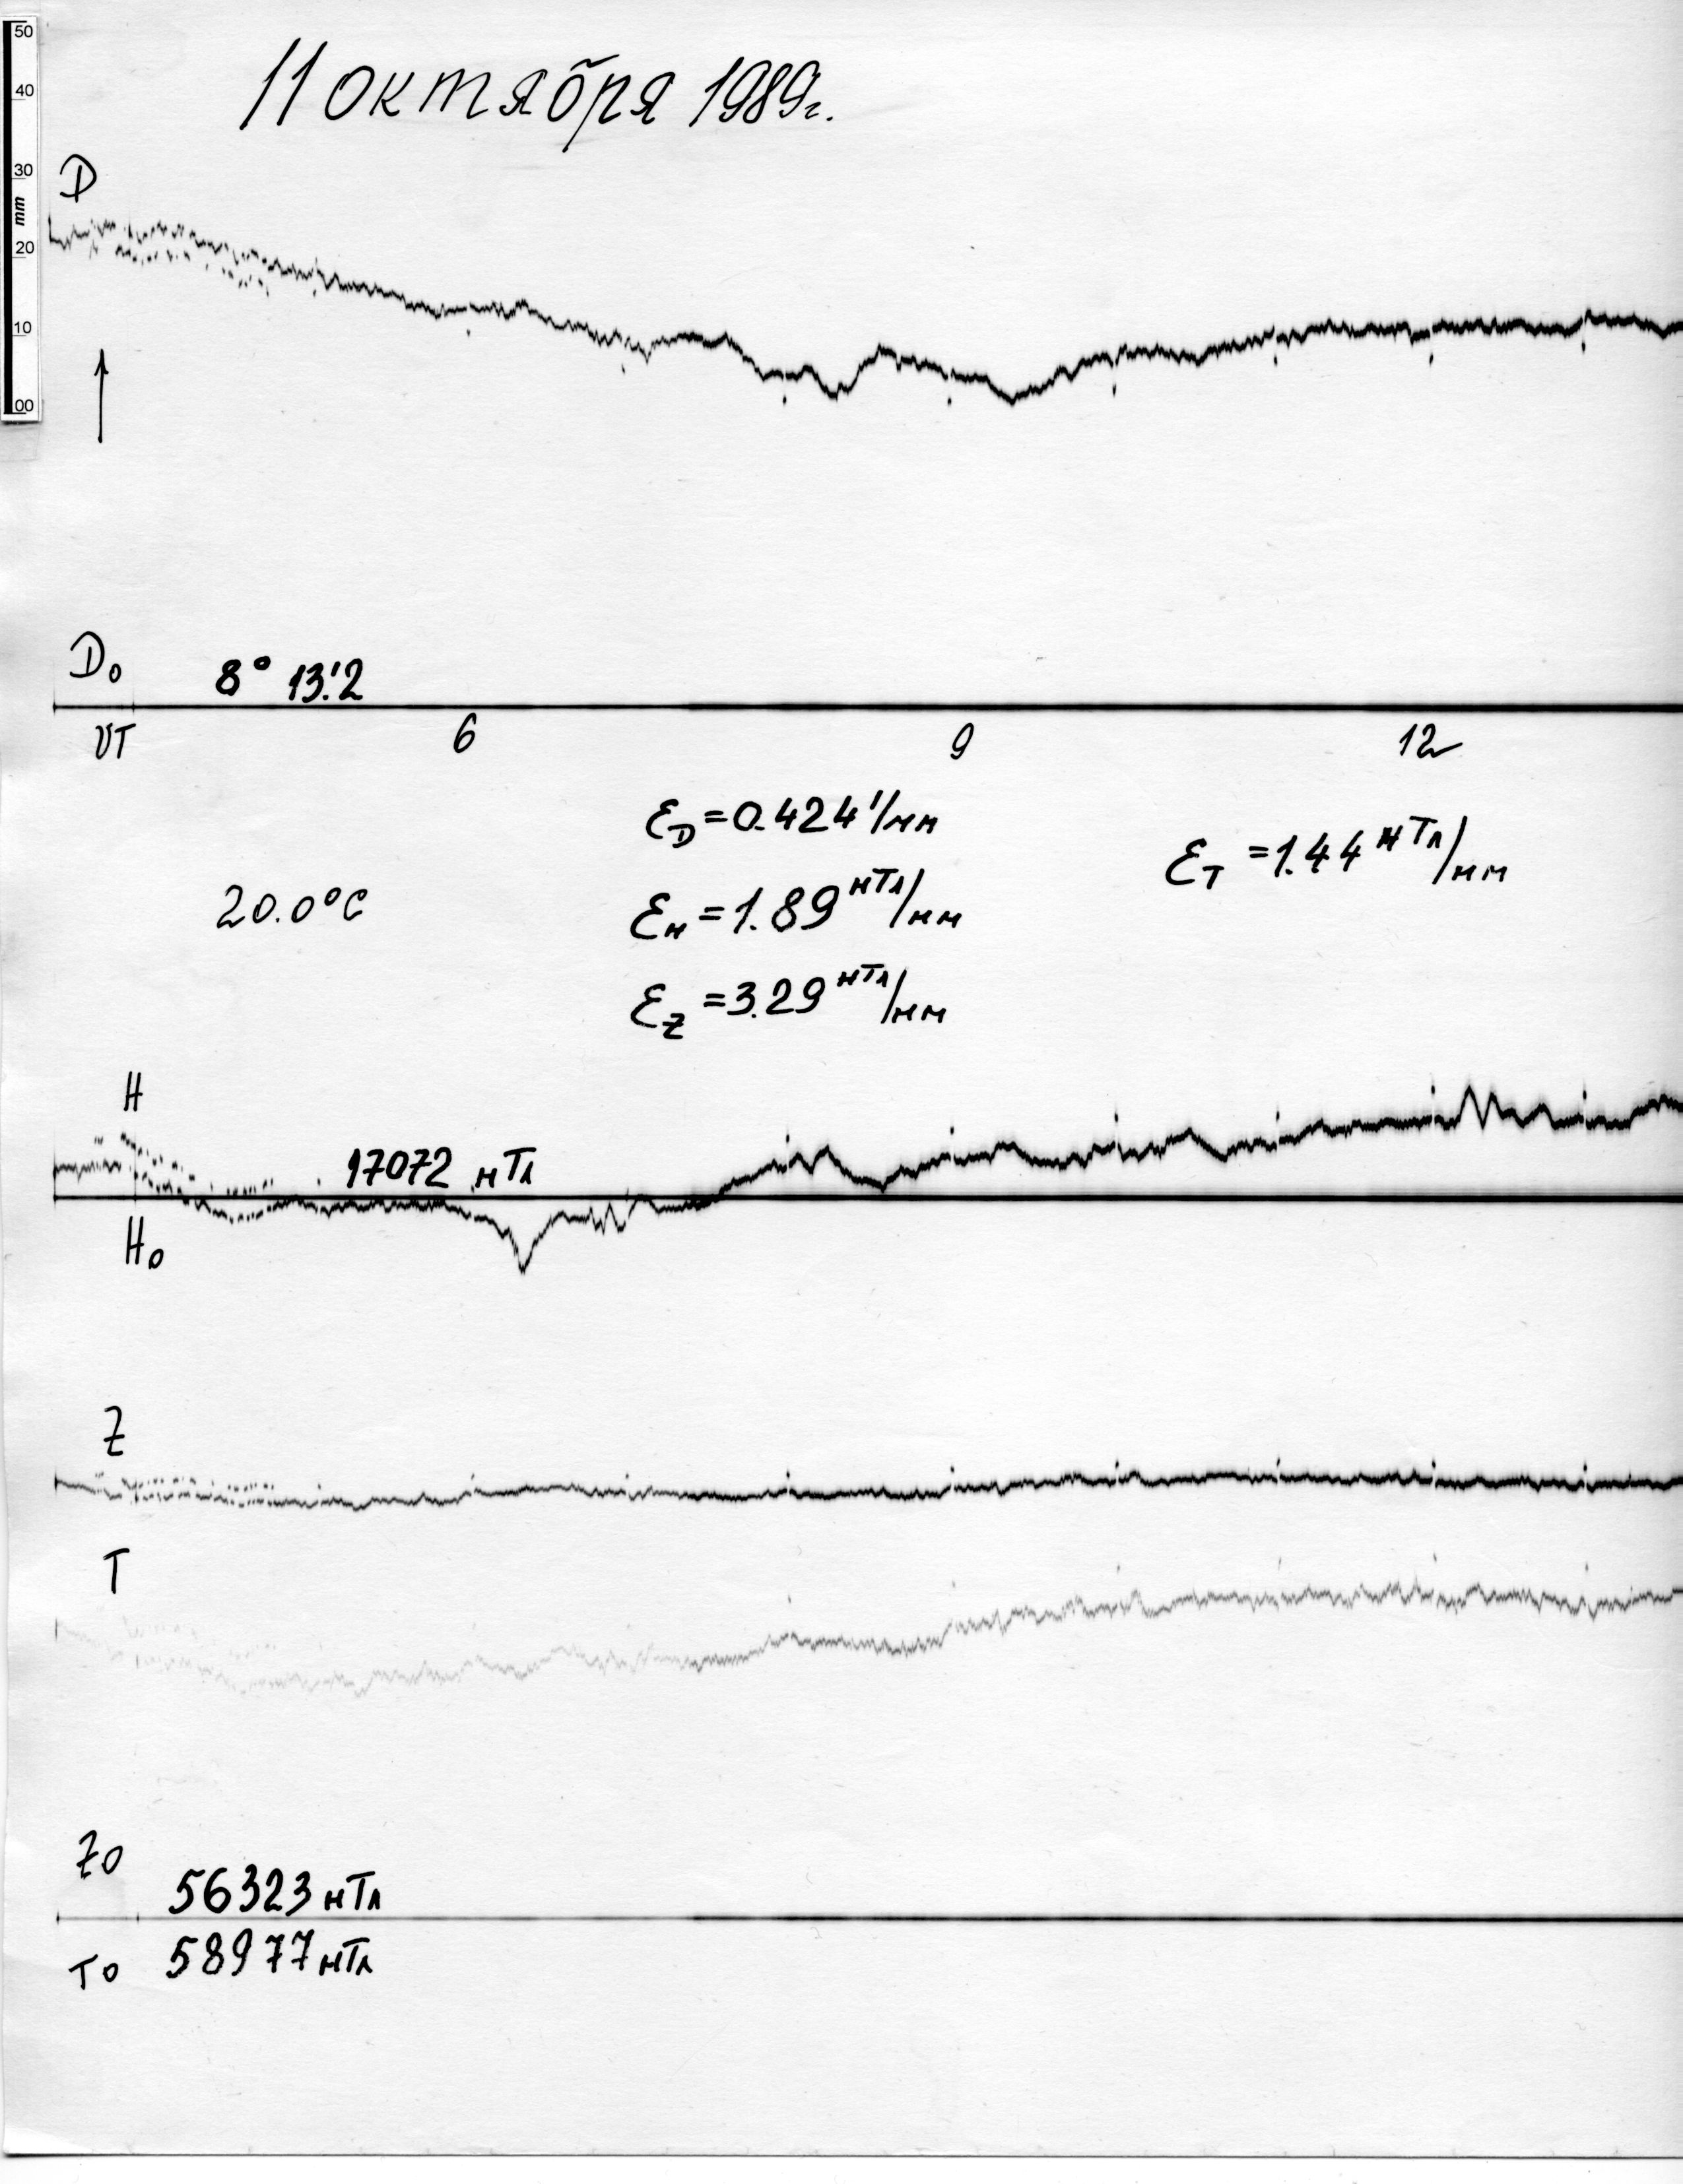 50
40
30
mm
20
10
00
11 октября 1989г.
D
D₀ 8° 13.'2
UT 6 9 12
ℰD = 0.424'/мм
ℰT = 1.44 нТл/мм
20.0°C
ℰн = 1.89 нТл/мм
ℰz = 3.29 нТл/мм
H
17072 нТл
H₀
Z
T
Z0
56323 нТл
T0 58977 нТл